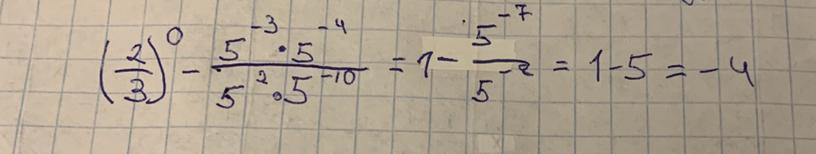 (2/3)⁰ - (5⁻³·5⁻⁴)/(5²·5⁻¹⁰) = 1 - 5⁻⁷/5⁻⁸ = 1-5 = -4